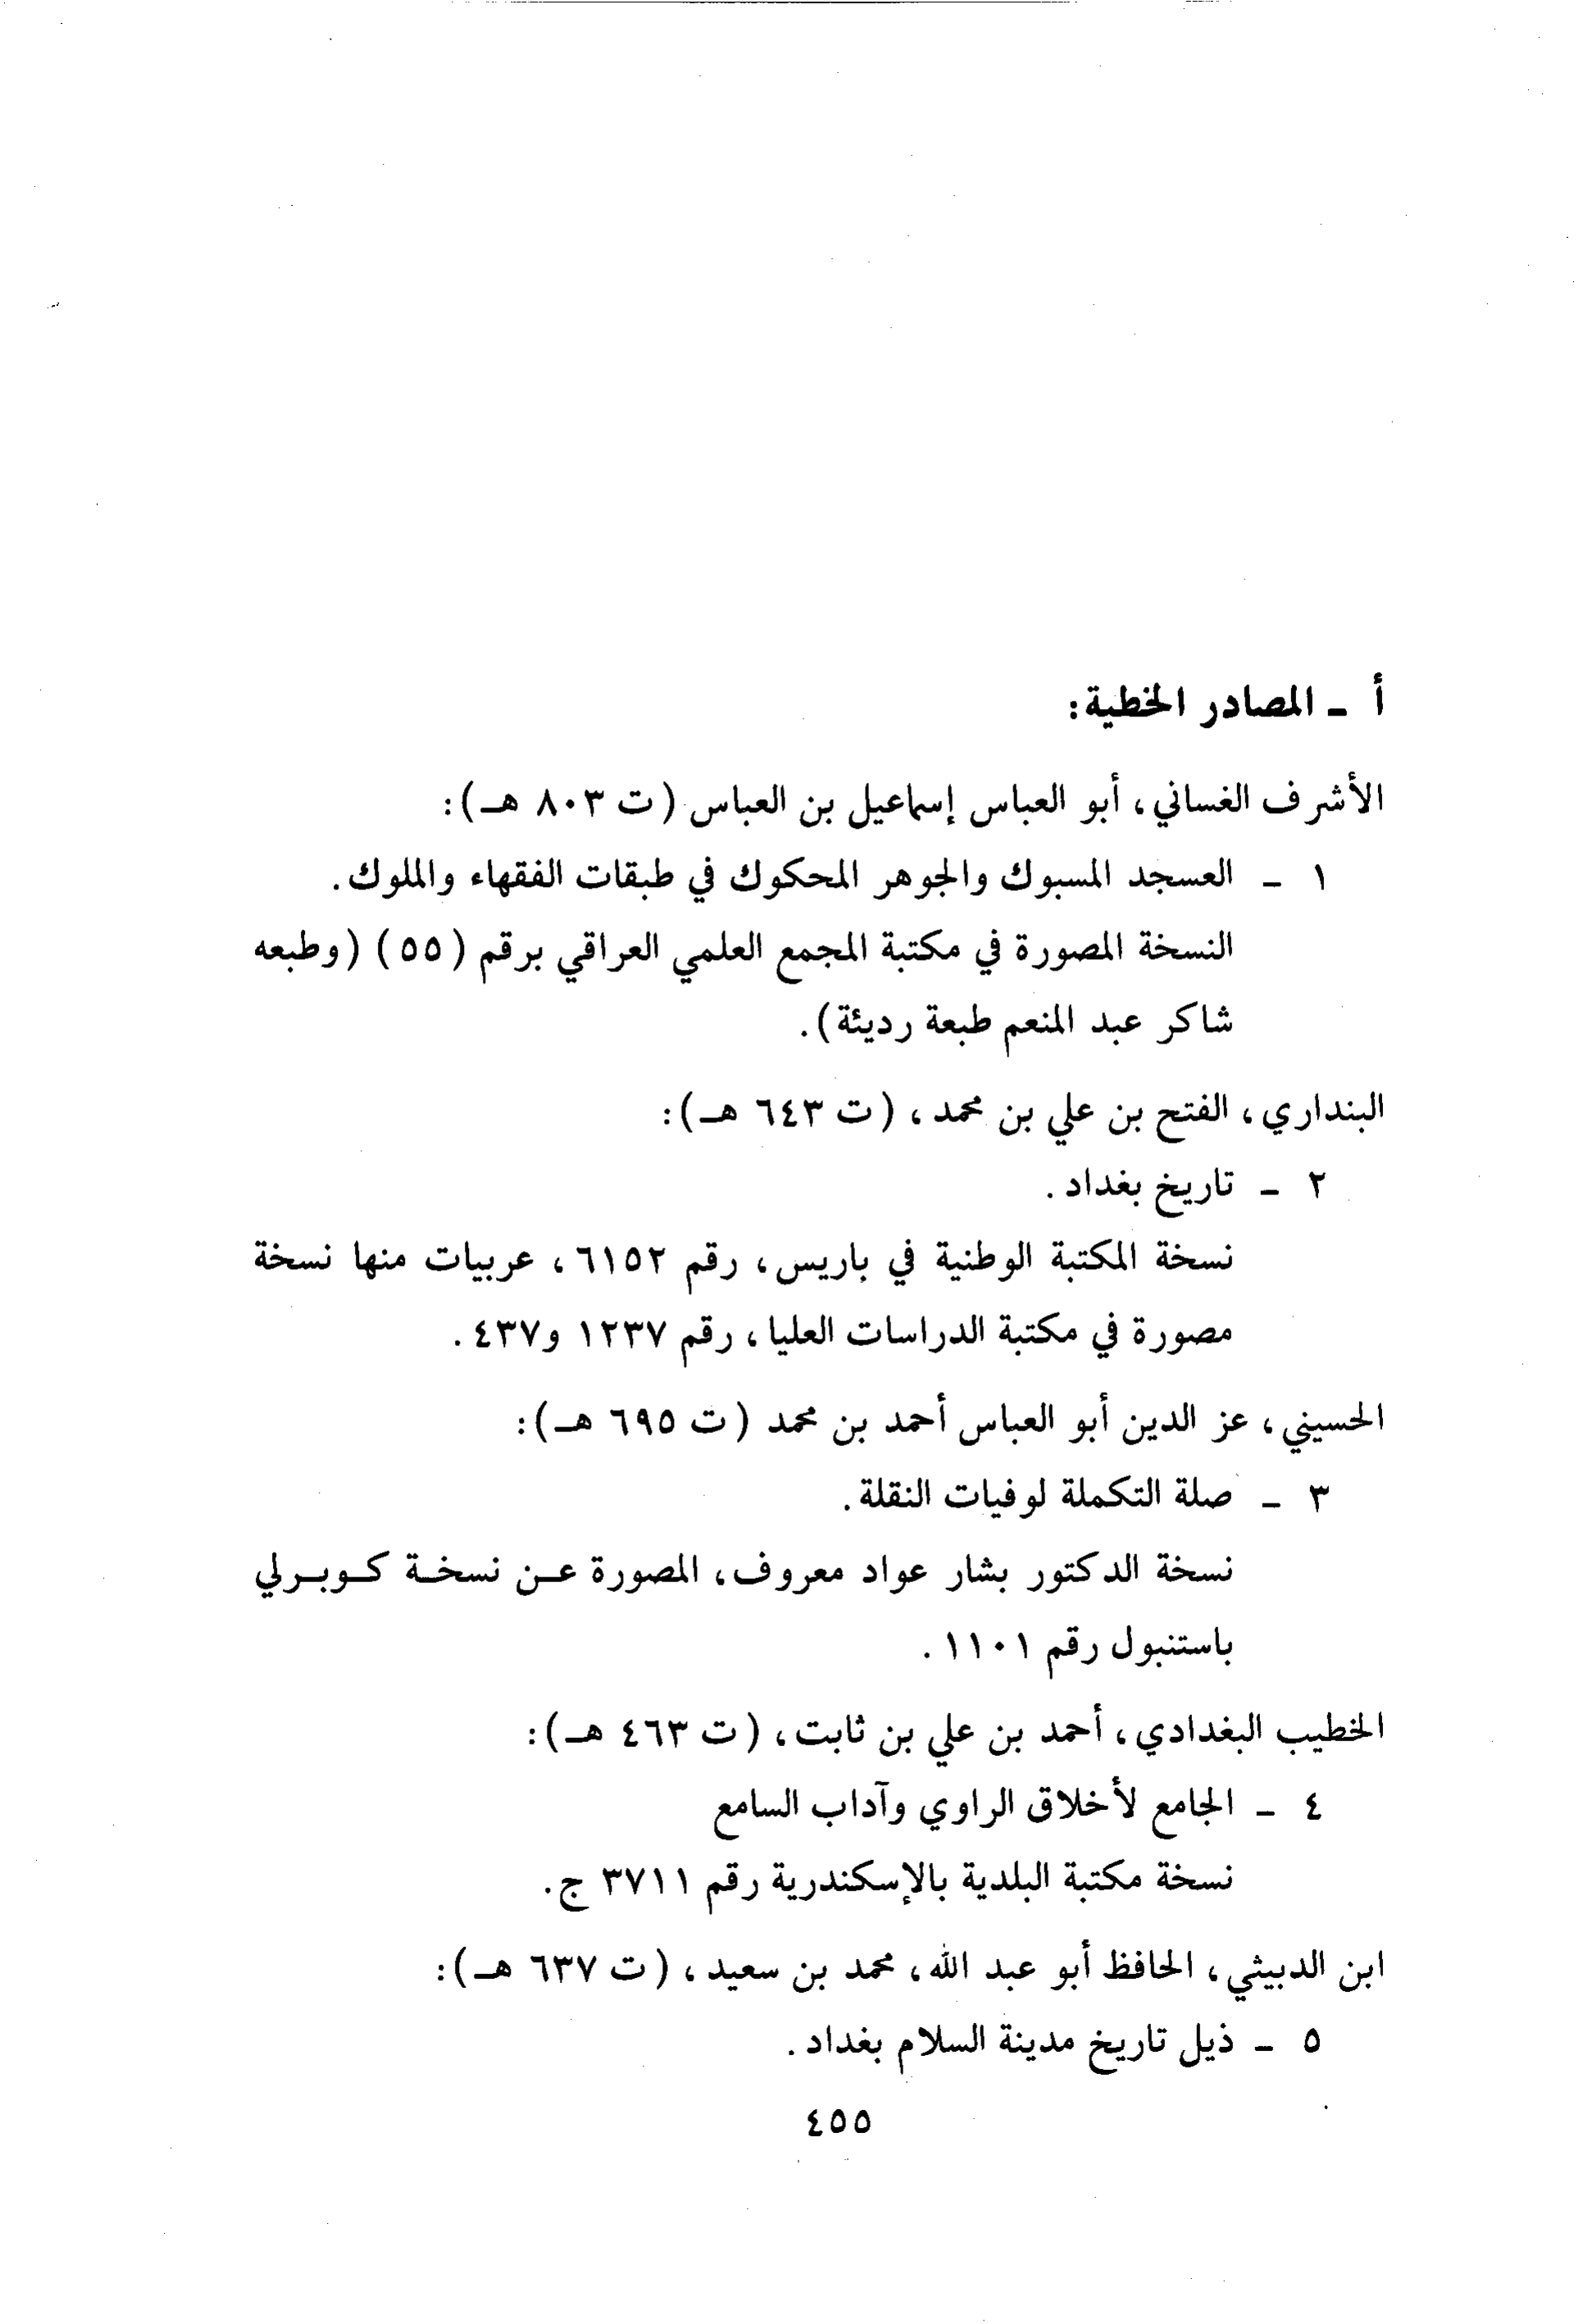 أ - المصادر الخطية:
الأشرف الغساني، أبو العباس إسماعيل بن العباس (ت ٨٠٣ هـ):
١ - العسجد المسبوك والجوهر المحكوك في طبقات الفقهاء والملوك.
النسخة المصورة في مكتبة المجمع العلمي العراقي برقم (٥٥) (وطبعه
شاكر عبد المنعم طبعة رديئة).
البنداري، الفتح بن علي بن محمد، (ت ٦٤٣ هـ):
٢ - تاريخ بغداد.
نسخة المكتبة الوطنية في باريس، رقم ٦١٥٢، عربيات منها نسخة
مصورة في مكتبة الدراسات العليا، رقم ١٢٣٧ و٤٣٧.
الحسيني، عز الدين أبو العباس أحمد بن محمد (ت ٦٩٥ هـ):
٣ - صلة التكملة لوفيات النقلة.
نسخة الدكتور بشار عواد معروف، المصورة عـن نسخـة كـوبـرلي
باستنبول رقم ١١٠١.
الخطيب البغدادي، أحمد بن علي بن ثابت، (ت ٤٦٣ هـ):
٤ - الجامع لأخلاق الراوي وآداب السامع
نسخة مكتبة البلدية بالإسكندرية رقم ٣٧١١ ج.
ابن الدبيثي، الحافظ أبو عبد الله، محمد بن سعيد، (ت ٦٣٧ هـ):
٥ - ذيل تاريخ مدينة السلام بغداد.
٤٥٥